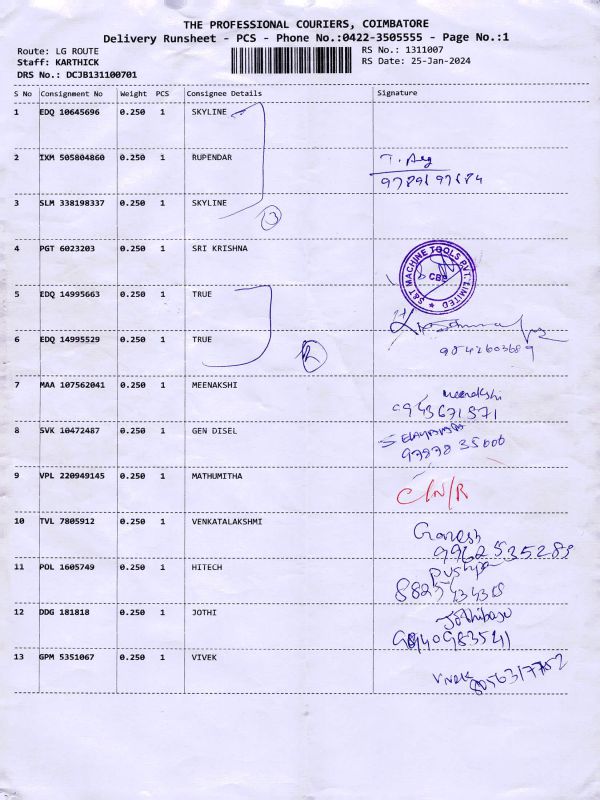 THE PROFESSIONAL COURIERS, COIMBATORE
Delivery Runsheet - PCS - Phone No.:0422-3505555 - Page No.:1
Route: LG ROUTE RS No.: 1311007
Staff: KARTHICK RS Date: 25-Jan-2024
DRS No.: DCJB131100701
S No Consignment No Weight PCS Consignee Details Signature
1 EDQ 10645696 0.250 1 SKYLINE
2 IXM 505804860 0.250 1 RUPENDAR
3 SLM 338198337 0.250 1 SKYLINE
3
4 PGT 6023203 0.250 1 SRI KRISHNA
S&T MACHINE TOOLS PVT. LIMITED
CBE
5 EDQ 14995663 0.250 1 TRUE
6 EDQ 14995529 0.250 1 TRUE
9042603689
2
7 MAA 107562041 0.250 1 MEENAKSHI Meenakshi
8 SVK 10472487 0.250 1 GEN DISEL
9 VPL 220949145 0.250 1 MATHUMITHA
C/N/R
10 TVL 7805912 0.250 1 VENKATALAKSHMI Ganesh
9962535289
11 POL 1605749 0.250 1 HITECH Pushpa
12 DDG 181818 0.250 1 JOTHI Jothibasu
13 GPM 5351067 0.250 1 VIVEK Vivek 8056317702